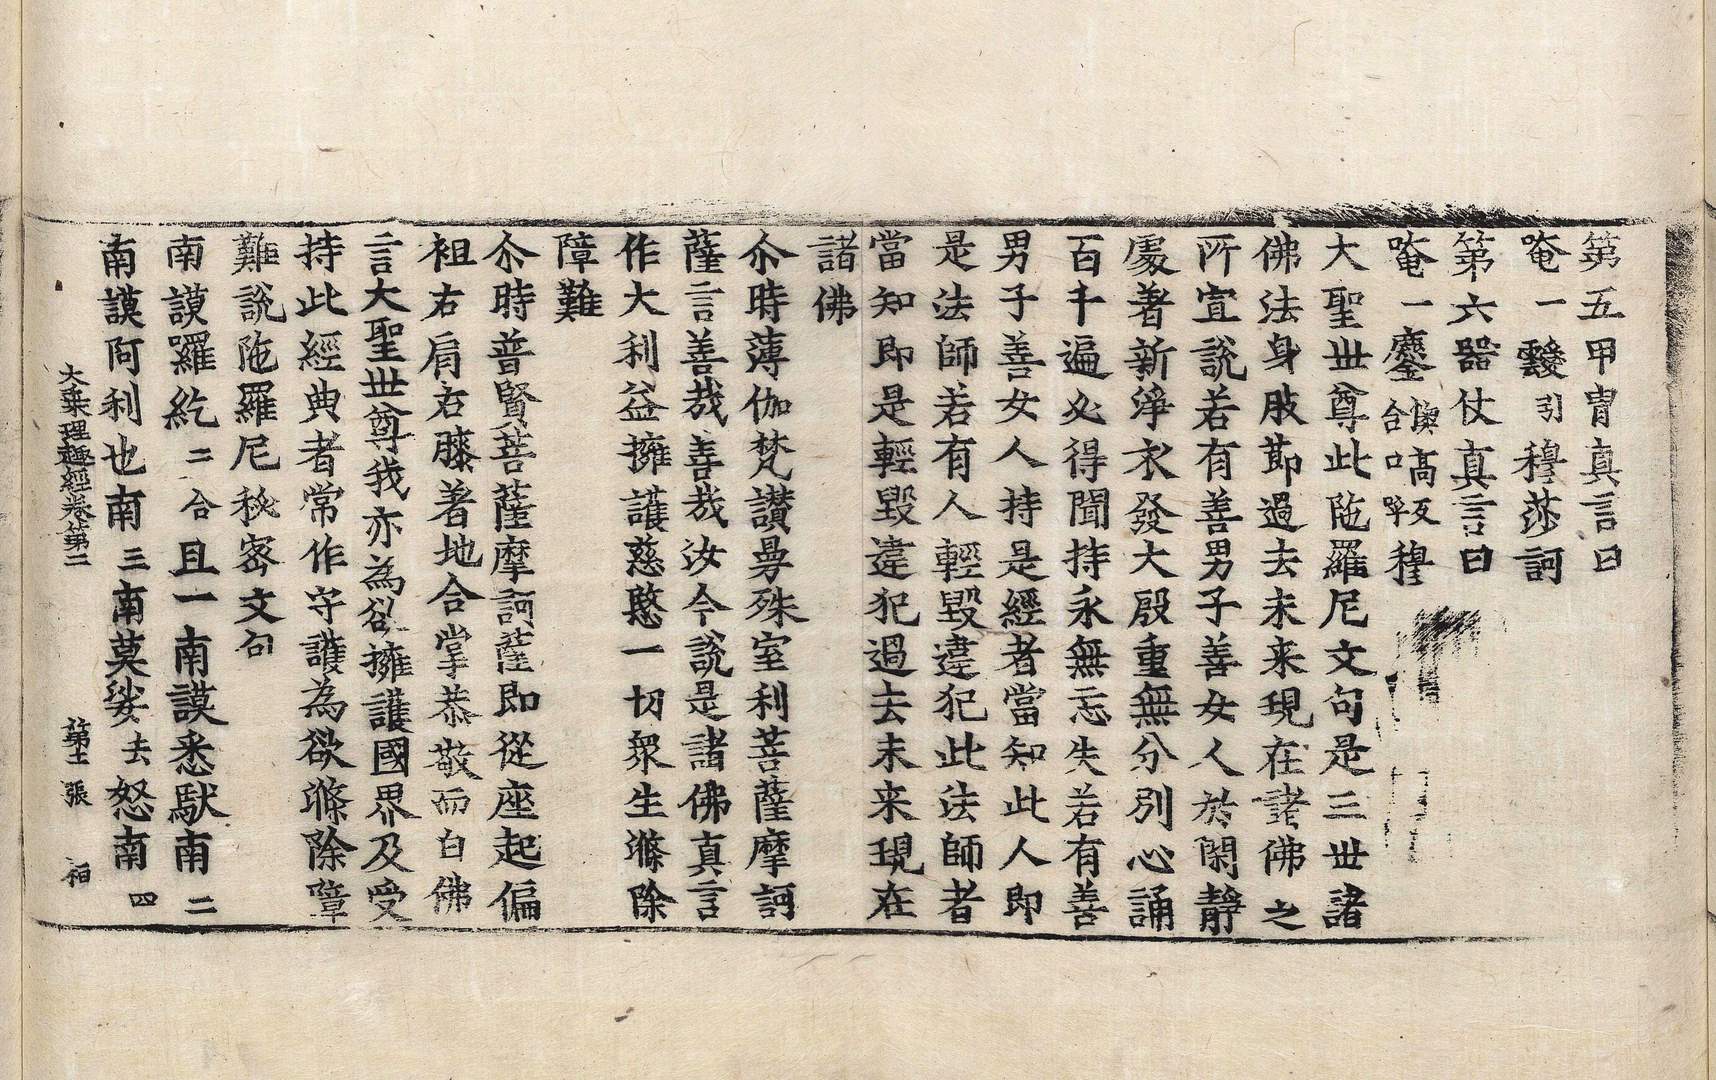 第五甲冑真言曰
唵一靉引穆莎訶
第六器仗真言曰
唵一鏖懊高反合口呼穆
大聖世尊此陁羅尼文句是三世諸
佛法身肢節過去未来現在諸佛之
所宣說若有善男子善女人於閑靜
處著新淨衣發大殷重無分別心誦
百千遍必得聞持永無忘失若有善
男子善女人持是經者當知此人即
是法師若有人輕毀違犯此法師者
當知即是輕毀違犯過去未来現在
諸佛
尒時薄伽梵讃曼殊室利菩薩摩訶
薩言善哉善哉汝今說是諸佛真言
作大利益擁護慈愍一切衆生滌除
障難
尒時普賢菩薩摩訶薩即從座起偏
袒右肩右膝著地合掌恭敬而白佛
言大聖世尊我亦為欲擁護國界及受
持此經典者常作守護為欲滌除障
難說陁羅尼秘密文句
南謨羅紇二合且一南謨悉馱南二
南謨阿利也南三南莫娑去怒南四
大乗理趣經卷第二 第十二張 柏